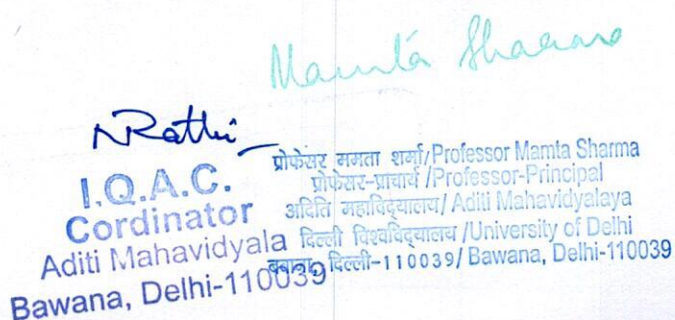 Mamta Sharma
NRathi
I.Q.A.C.
Cordinator
Aditi Mahavidyala
Bawana, Delhi-110039
प्रोफेसर ममता शर्मा/Professor Mamta Sharma
प्रोफेसर-प्राचार्य /Professor-Principal
अदिति महाविद्यालय/ Aditi Mahavidyalaya
दिल्ली विश्वविद्यालय /University of Delhi
बवाना, दिल्ली-110039/ Bawana, Delhi-110039